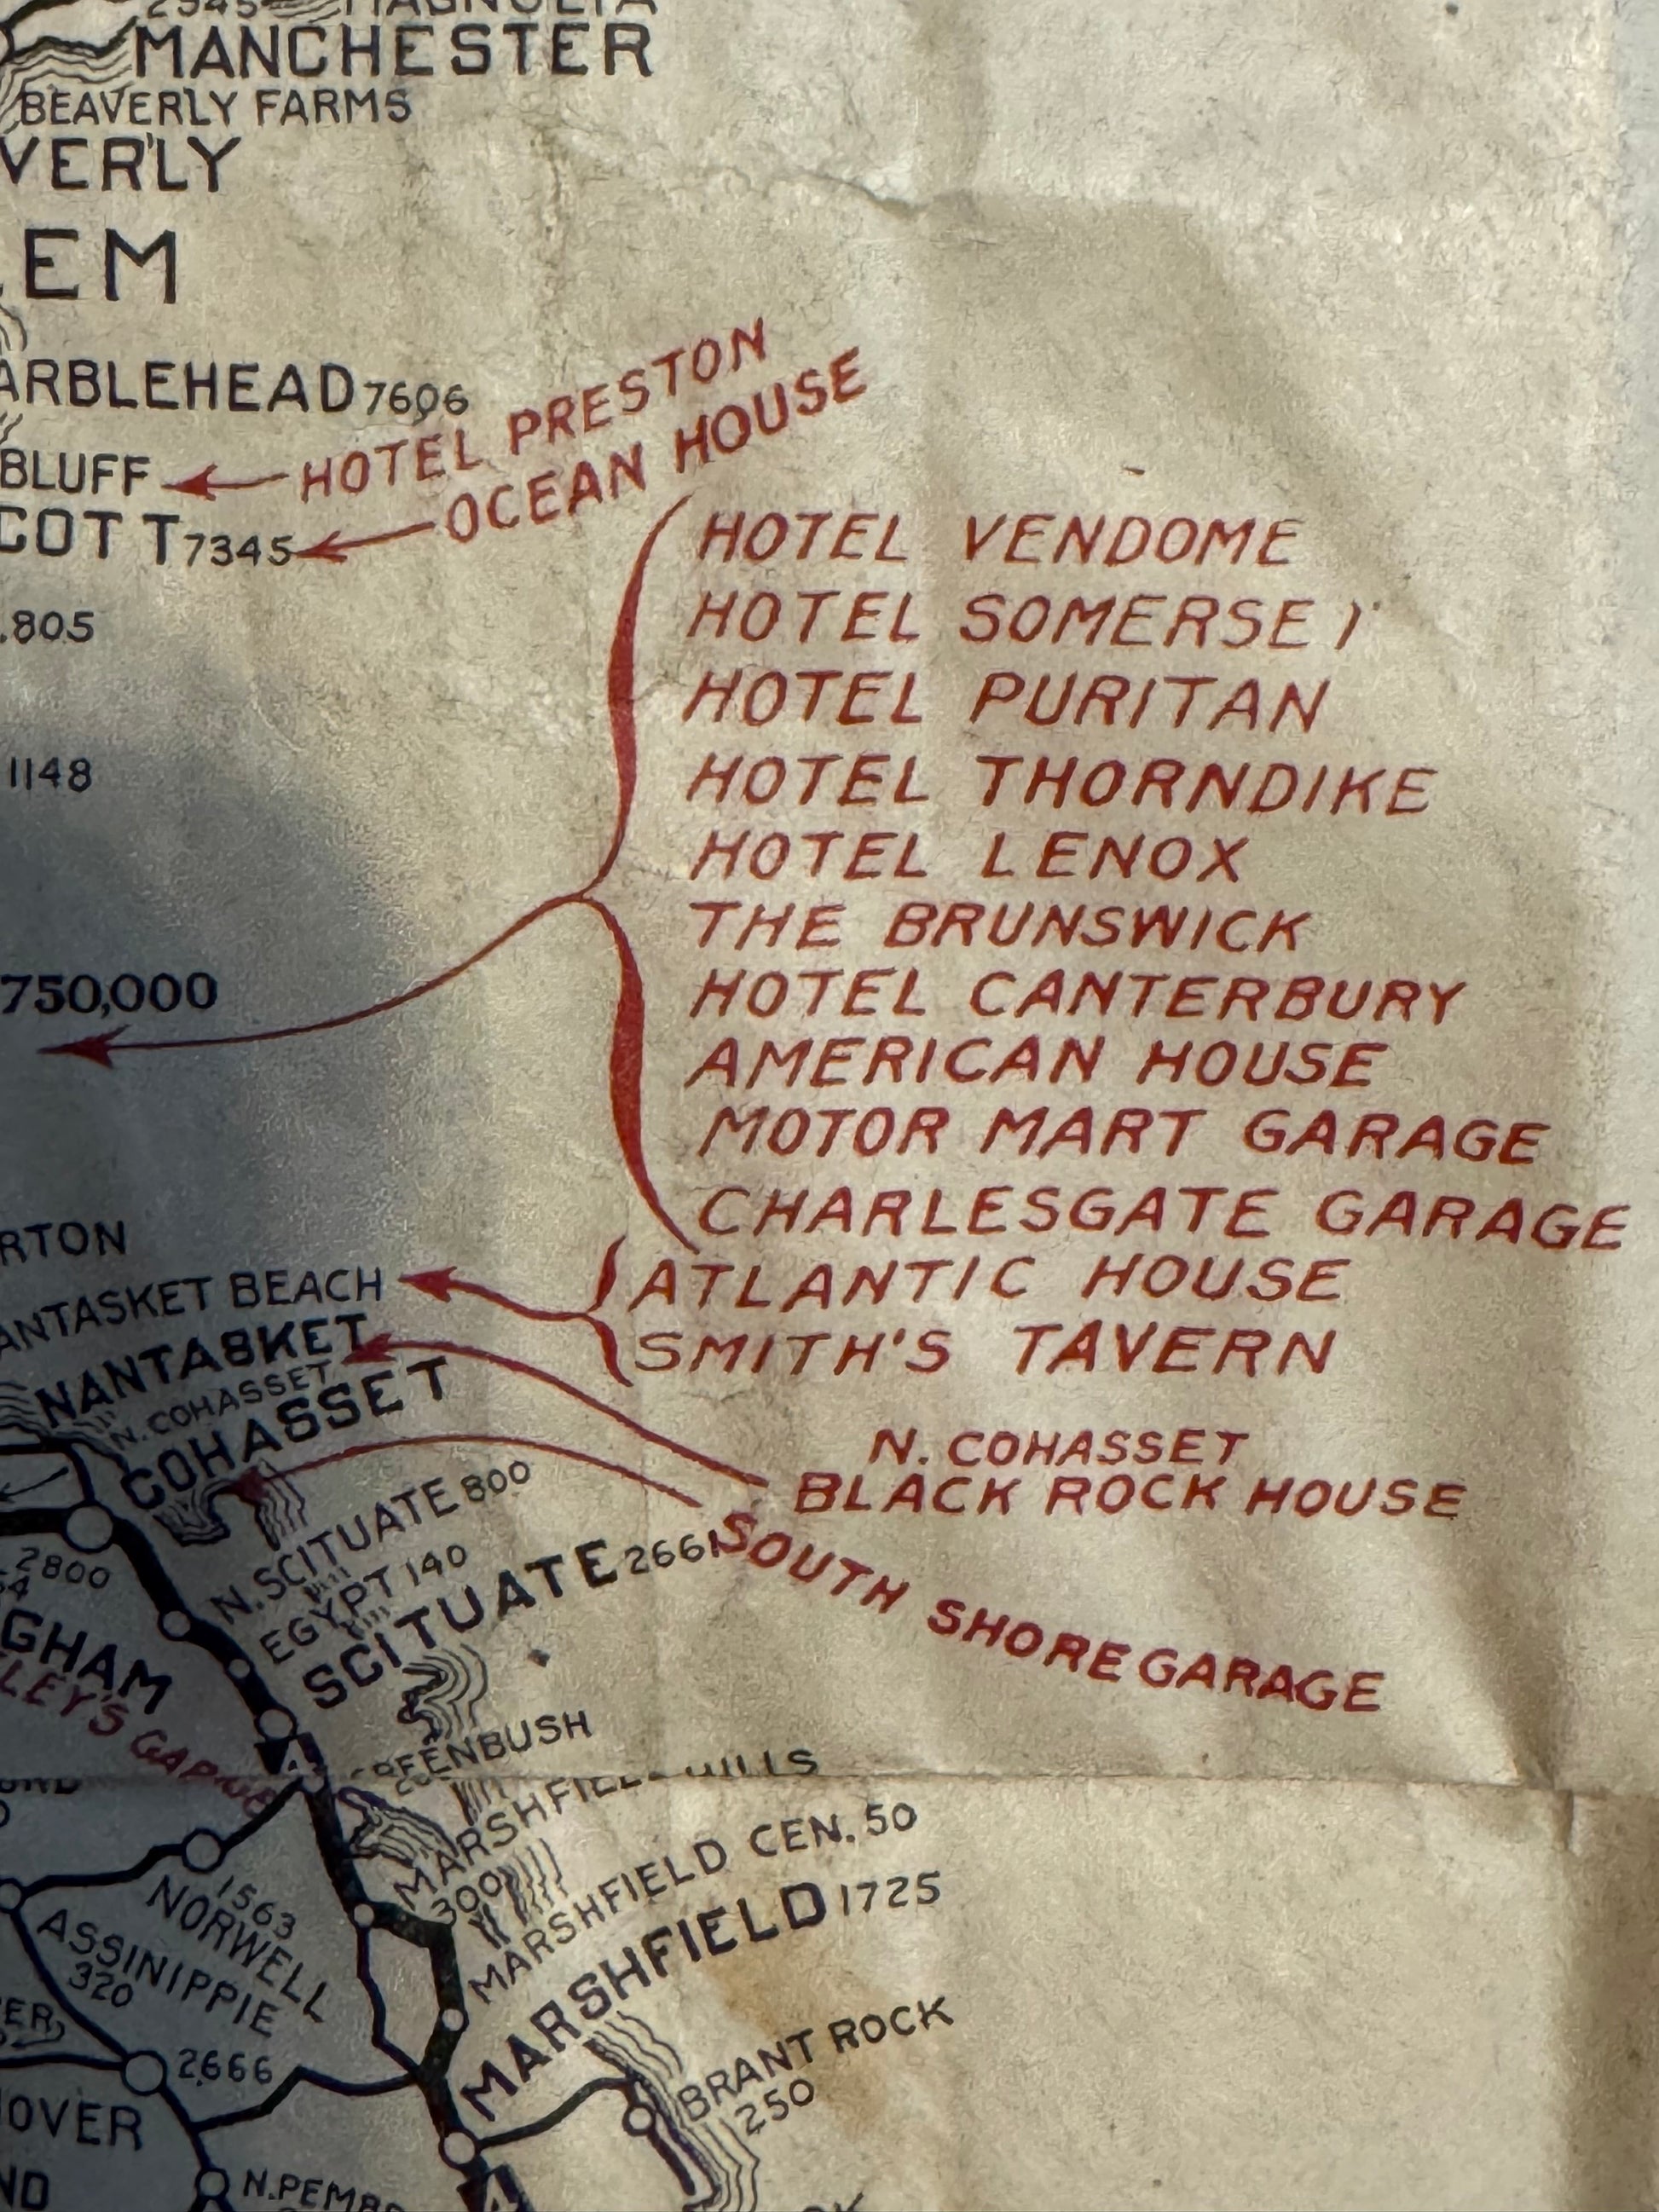 2945 MAGNOLIA
MANCHESTER
BEAVERLY FARMS
VERLY
EM
ARBLEHEAD 7606
HOTEL PRESTON
BLUFF
OCEAN HOUSE
COTT 7345
HOTEL VENDOME
HOTEL SOMERSET
.805
HOTEL PURITAN
1148
HOTEL THORNDIKE
HOTEL LENOX
THE BRUNSWICK
750,000
HOTEL CANTERBURY
AMERICAN HOUSE
MOTOR MART GARAGE
CHARLESGATE GARAGE
RTON
ATLANTIC HOUSE
ANTASKET BEACH
SMITH'S TAVERN
NANTASKET
N. COHASSET
COHASSET
N. COHASSET
BLACK ROCK HOUSE
SOUTH SHORE GARAGE
N. SCITUATE 800
2800
EGYPT 140
SCITUATE 2661
GHAM
LEY'S GARAGE
GREENBUSH
MARSHFIELD HILLS
300
MARSHFIELD CEN. 50
MARSHFIELD 1725
1563
NORWELL
ASSINIPPIE
320
BRANT ROCK
250
2666
OVER
ND
N. PEMB